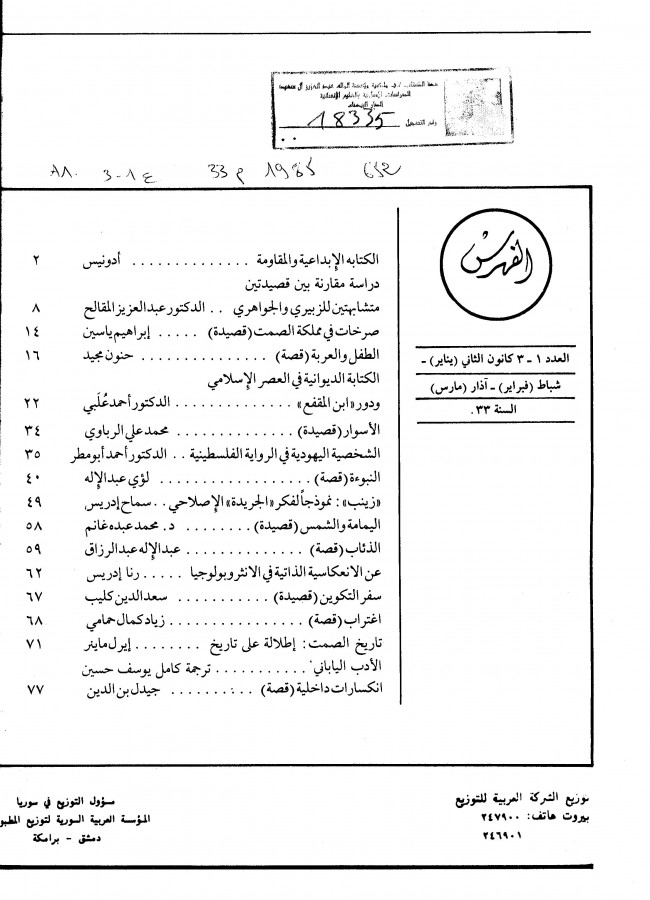 18335
رقم التسجيل
٨١٠ ع ١-٣ م 33 1985
الفهرس
العدد ١ - ٣ كانون الثاني (يناير) -
شباط (فبراير) - آذار (مارس)
السنة ٣٣.
الكتابه الإبداعية والمقاومة . . . . . . . . . . . . . . أدونيس ٢
دراسة مقارنة بين قصيدتين
متشابهتين للزبيري والجواهري . . الدكتور عبد العزيز المقالح ٨
صرخات في مملكة الصمت (قصيدة) . . . . . إبراهيم ياسين ١٤
الطفل والعربة (قصة) . . . . . . . . . . . . . . . حنون مجيد ١٦
الكتابة الديوانية في العصر الإسلامي
ودور «ابن المقفع» . . . . . . . . . . . . . . الدكتور أحمد عُلَبي ٢٢
الأسوار (قصيدة) . . . . . . . . . . . . . . محمد علي الرباوي ٣٤
الشخصية اليهودية في الرواية الفلسطينية . . الدكتور أحمد أبو مطر ٣٥
النبوءة (قصة) . . . . . . . . . . . . . . . . . . لؤي عبد الإله ٤٠
«زينب»: نموذجاً لفكر «الجريدة» الإصلاحي . . سماح إدريس ٤٩
اليمامة والشمس (قصيدة) . . . . . . . . د. محمد عبده غانم ٥٨
الذئاب (قصة) . . . . . . . . . . . . . . عبد الإله عبد الرزاق ٥٩
عن الانعكاسية الذاتية في الانثروبولوجيا . . . . . رنا إدريس ٦٢
سفر التكوين (قصيدة) . . . . . . . . . . . سعد الدين كليب ٦٧
اغتراب (قصة) . . . . . . . . . . . . . . . . زياد كمال حمامي ٦٨
تاريخ الصمت: إطلالة على تاريخ . . . . . . . . إيرل ماينر ٧١
الأدب الياباني . . . . . . . . . . . ترجمة كامل يوسف حسين
انكسارات داخلية (قصة) . . . . . . . . . . جيدل بن الدين ٧٧
توزيع الشركة العربية للتوزيع
بيروت هاتف: ٢٤٧٩٠٠
٢٤٦٩٠١
مسؤول التوزيع في سوريا
المؤسسة العربية السورية لتوزيع المطبو
دمشق - برامكة